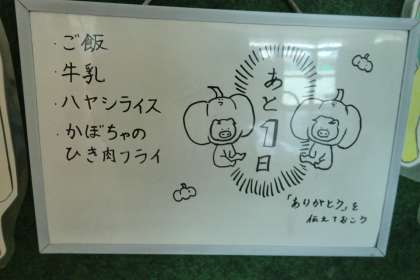 ・ご飯
・牛乳
・ハヤシライス
・かぼちゃの
ひき肉フライ
あと
1
日
「ありがとう」を
伝えておこう